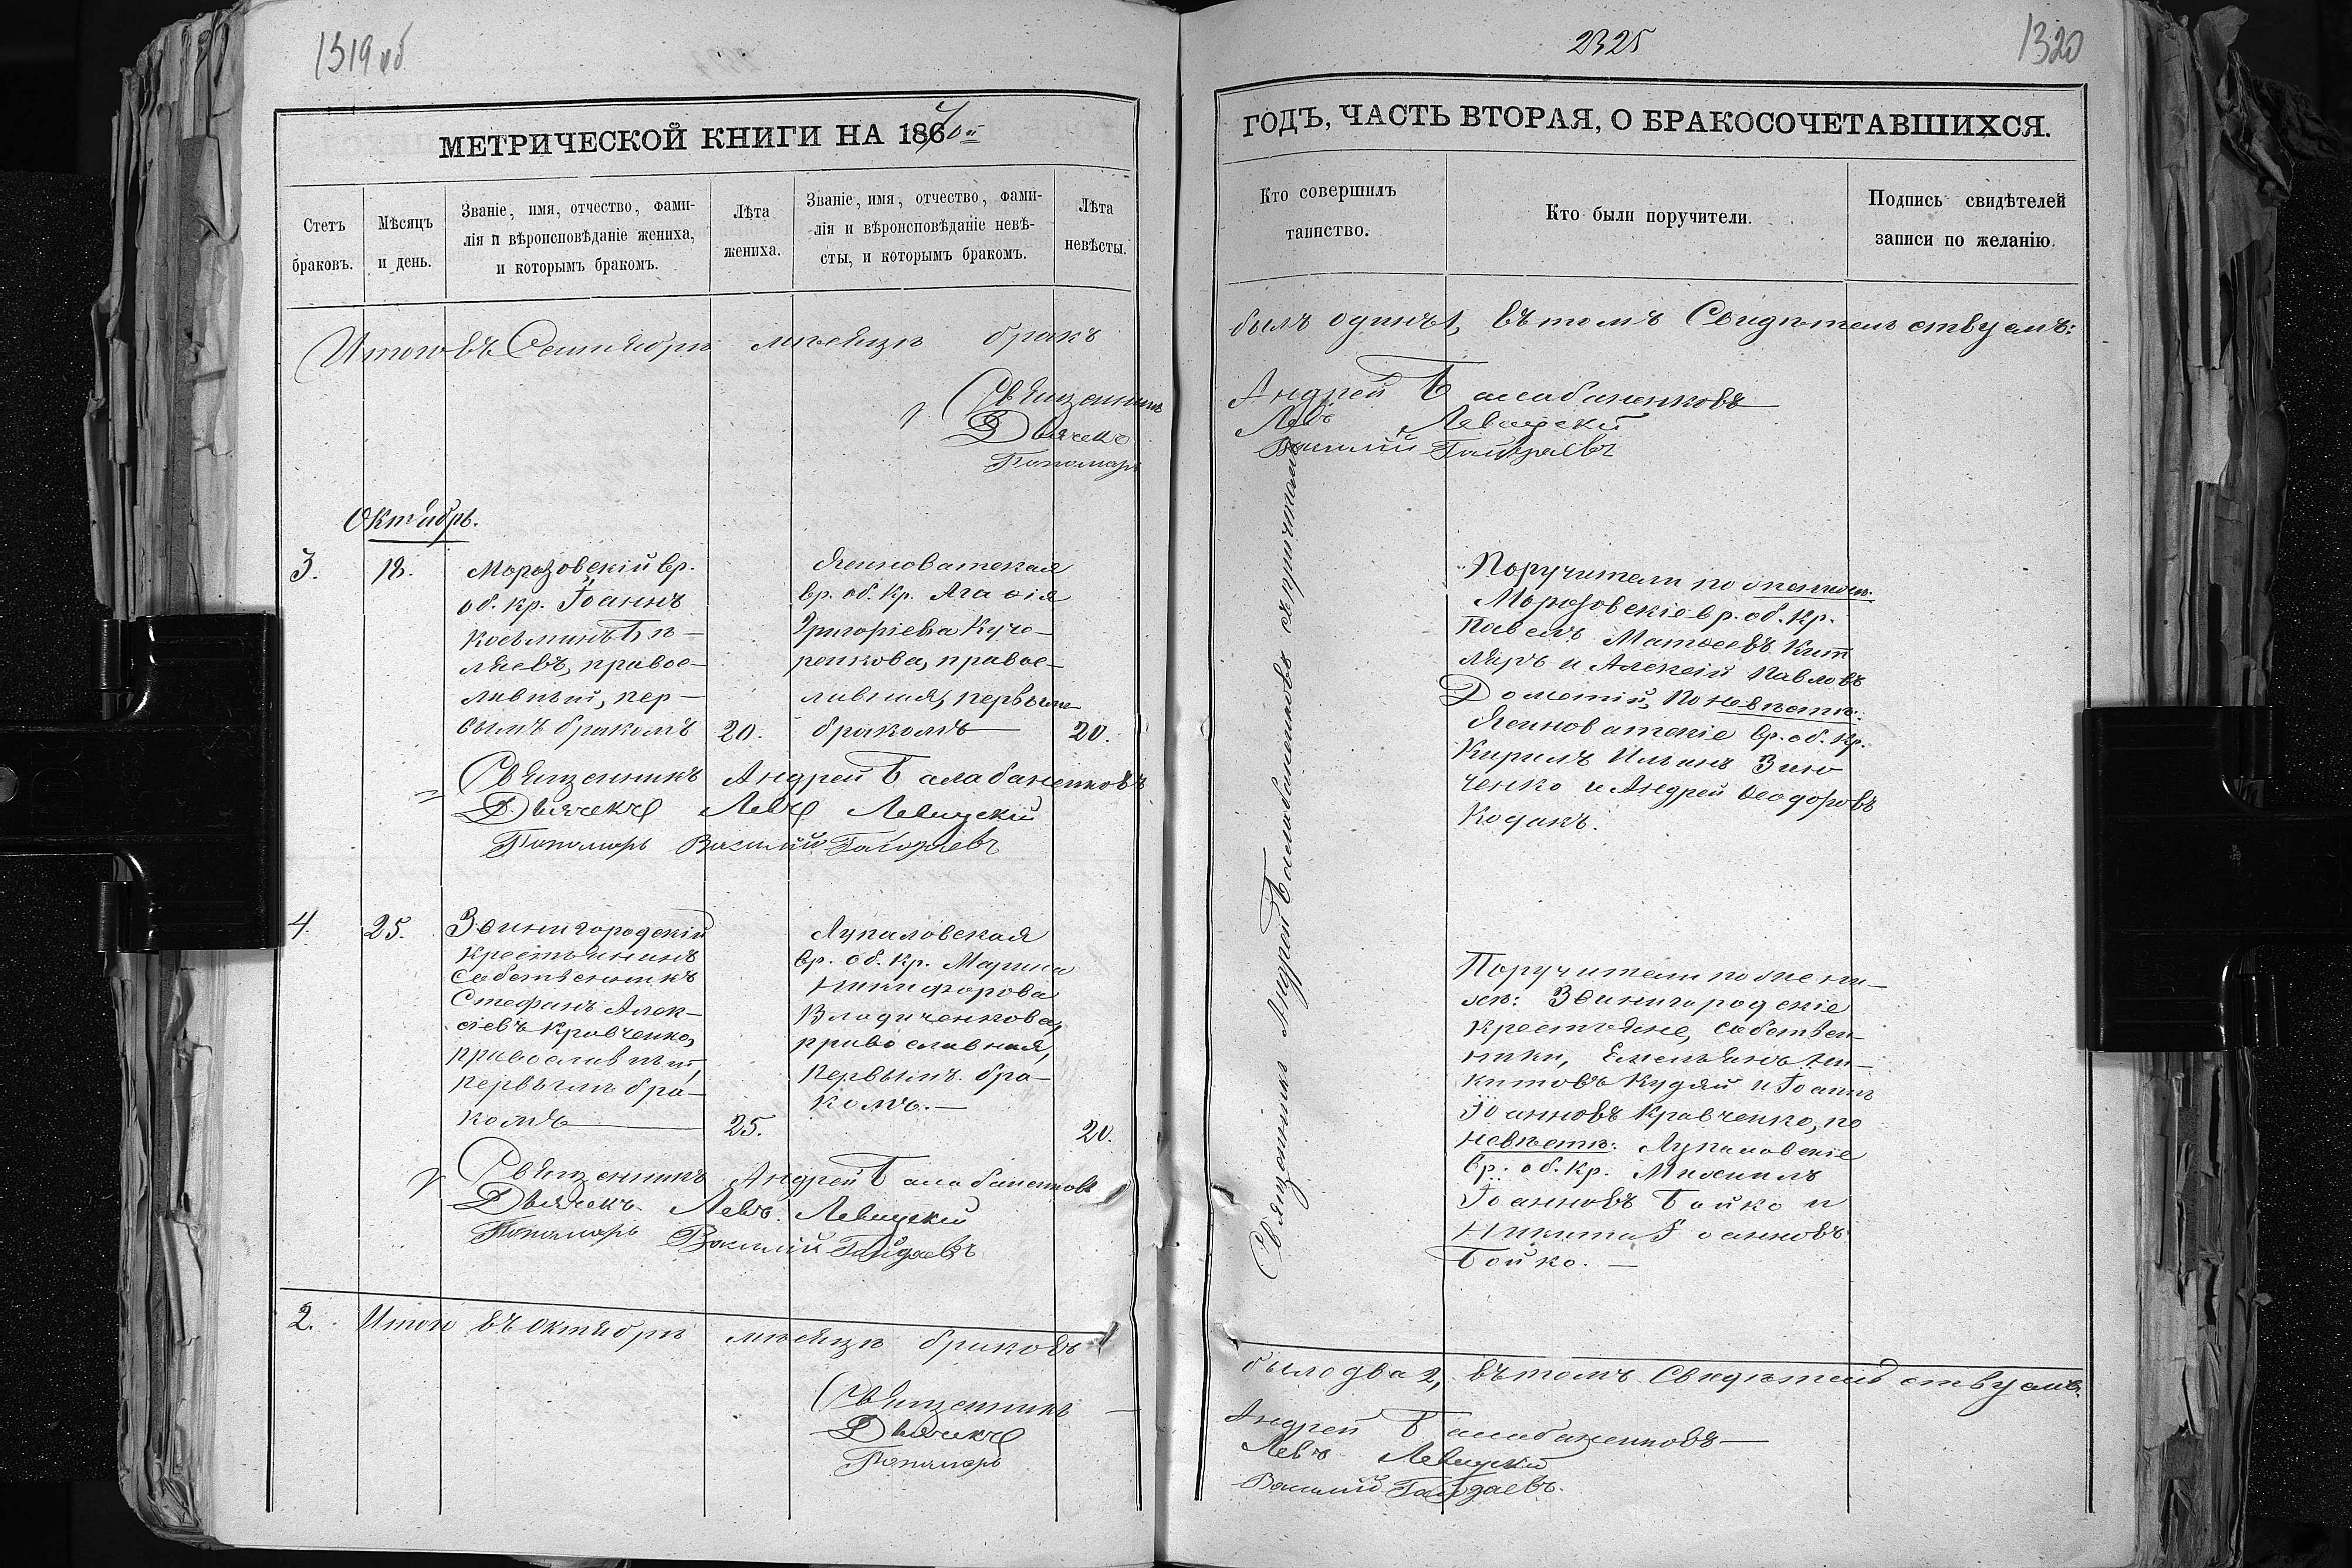 1319 об
МЕТРИЧЕСКОЙ КНИГИ НА 1867ой
Счетъ браковъ.
Мѣсяцъ и день.
Званіе, имя, отчество, фами-
лія и вѣроисповѣданіе жениха,
и которымъ бракомъ.
Лѣта жениха.
Званіе, имя, отчество, фами-
лія и вѣроисповѣданіе невѣ-
сты, и которымъ бракомъ.
Лѣта невѣсты.
Итого въ Сентябрѣ мѣсяцѣ бракъ
Священникъ
Дьячекъ
Пономарь
Октябрь.
3.
18.
Морозовскій вр.
об. кр. Іоаннъ
Косьминъ Бѣ-
ляевъ, правос-
лавный, пер-
вымъ бракомъ
20.
Ясиноватская
вр. об. кр. Агафія
Григоріева Куче-
ренкова, правос-
лавная, первымъ
бракомъ
20.
Священникъ Андрей Балабаненковъ
Дьячекъ Левъ Левицкій
Пономарь Василій
4.
25.
Звинигородскій
крестьянинъ
собственникъ
Стефанъ Алек-
сіевъ Кравченко,
православный,
первымъ бра-
комъ
25.
Лупаловская
вр. об. кр. Марина
Никифорова
Владиченкова,
православная,
первымъ бра-
комъ.
20.
Священникъ Андрей Балабаненковъ
Дьячекъ Левъ Левицкій
Пономарь Василій
2. Итого въ Октябрѣ мѣсяцѣ браковъ
Священникъ
Дьячекъ
Пономарь
2325
1320
ГОДЪ, ЧАСТЬ ВТОРАЯ, О БРАКОСОЧЕТАВШИХСЯ.
Кто совершилъ
таинство.
Кто были поручители.
Подпись свидѣтелей
записи по желанію.
былъ одинъ 1, въ томъ Свидѣтельствуемъ:
Андрей Балабаненковъ
Левъ Левицкій
Василій
Священникъ Андрей Балабаненковъ съ причтомъ
Поручители по женихѣ:
Морозовскіе вр. об. кр.
Павелъ Матѳеевъ
и Алексій Павловъ
По невѣстѣ:
Ясиноватскіе вр. об. кр.
Кирилъ Ильинъ Зин-
ченко и Андрей Ѳеодоровъ
Коданъ.
Поручители по жени-
хѣ: Звинигородскіе
крестьяне, собствен-
ники, Емельянъ Ни-
китовъ Кудяй и Іоаннъ
Іоанновъ Кравченко, по
невѣстѣ: Лупаловскіе
вр. об. кр. Михаилъ
Іоанновъ Бойко и
Никита Іоанновъ
Бойко.
было два 2, въ томъ Свидѣтельствуемъ.
Андрей Балабаненковъ
Левъ Левицкій
Василій